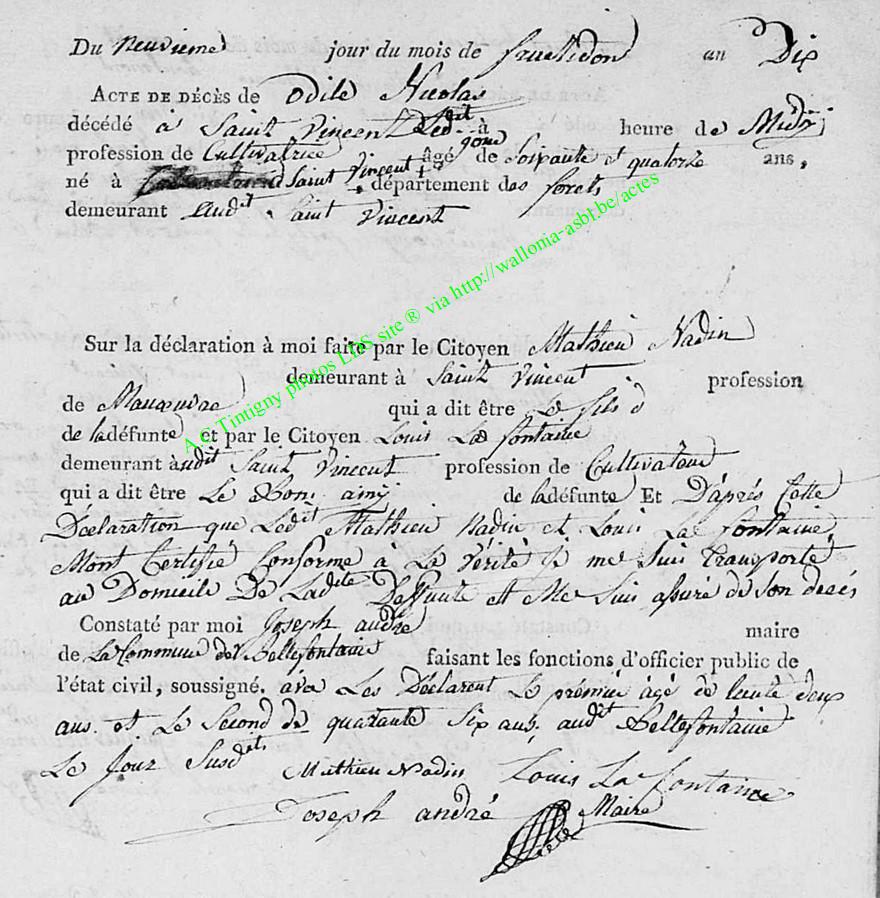 Du neuvieme jour du mois de fructidor an Dix
ACTE DE DÉCÈS de Odile Nicolas
décédé à Saint Vincent Ledit à heure de Midy
profession de Cultivatrice âgé de Soixante et quatorze ans,
né à Saint Vincent + département des forets
demeurant audit Saint Vincent
A.C Tintigny photos LDS site ® via http://wallonia-asbl.be/actes
Sur la déclaration à moi faite par le Citoyen Mathieu Nadin
demeurant à Saint Vincent profession
de Manœuvre qui a dit être Le fils
de ladéfunte et par le Citoyen Louis La fontaine
demeurant audit Saint Vincent profession de Cultivateur
qui a dit être Le Bon amy de ladéfunte Et D'après Cette
Déclaration que Ledit Mathieu Nadin et Louis La fontaine
Mont Certifié Conforme à La Vérité je me suis transporté
au Domicile De Ladite Deffunte et Me Suis assuré de son decés
Constaté par moi Joseph andré maire
de La Commune de Bellefontaine faisant les fonctions d'officier public de
l'état civil, soussigné. avec Les Déclarent Le premier agé de trente deux
ans. et Le Second de quarante Six ans, audit Bellefontaine
Le Jour Susdits
Mathieu Nadin Louis La fontaine
Joseph andré Maire